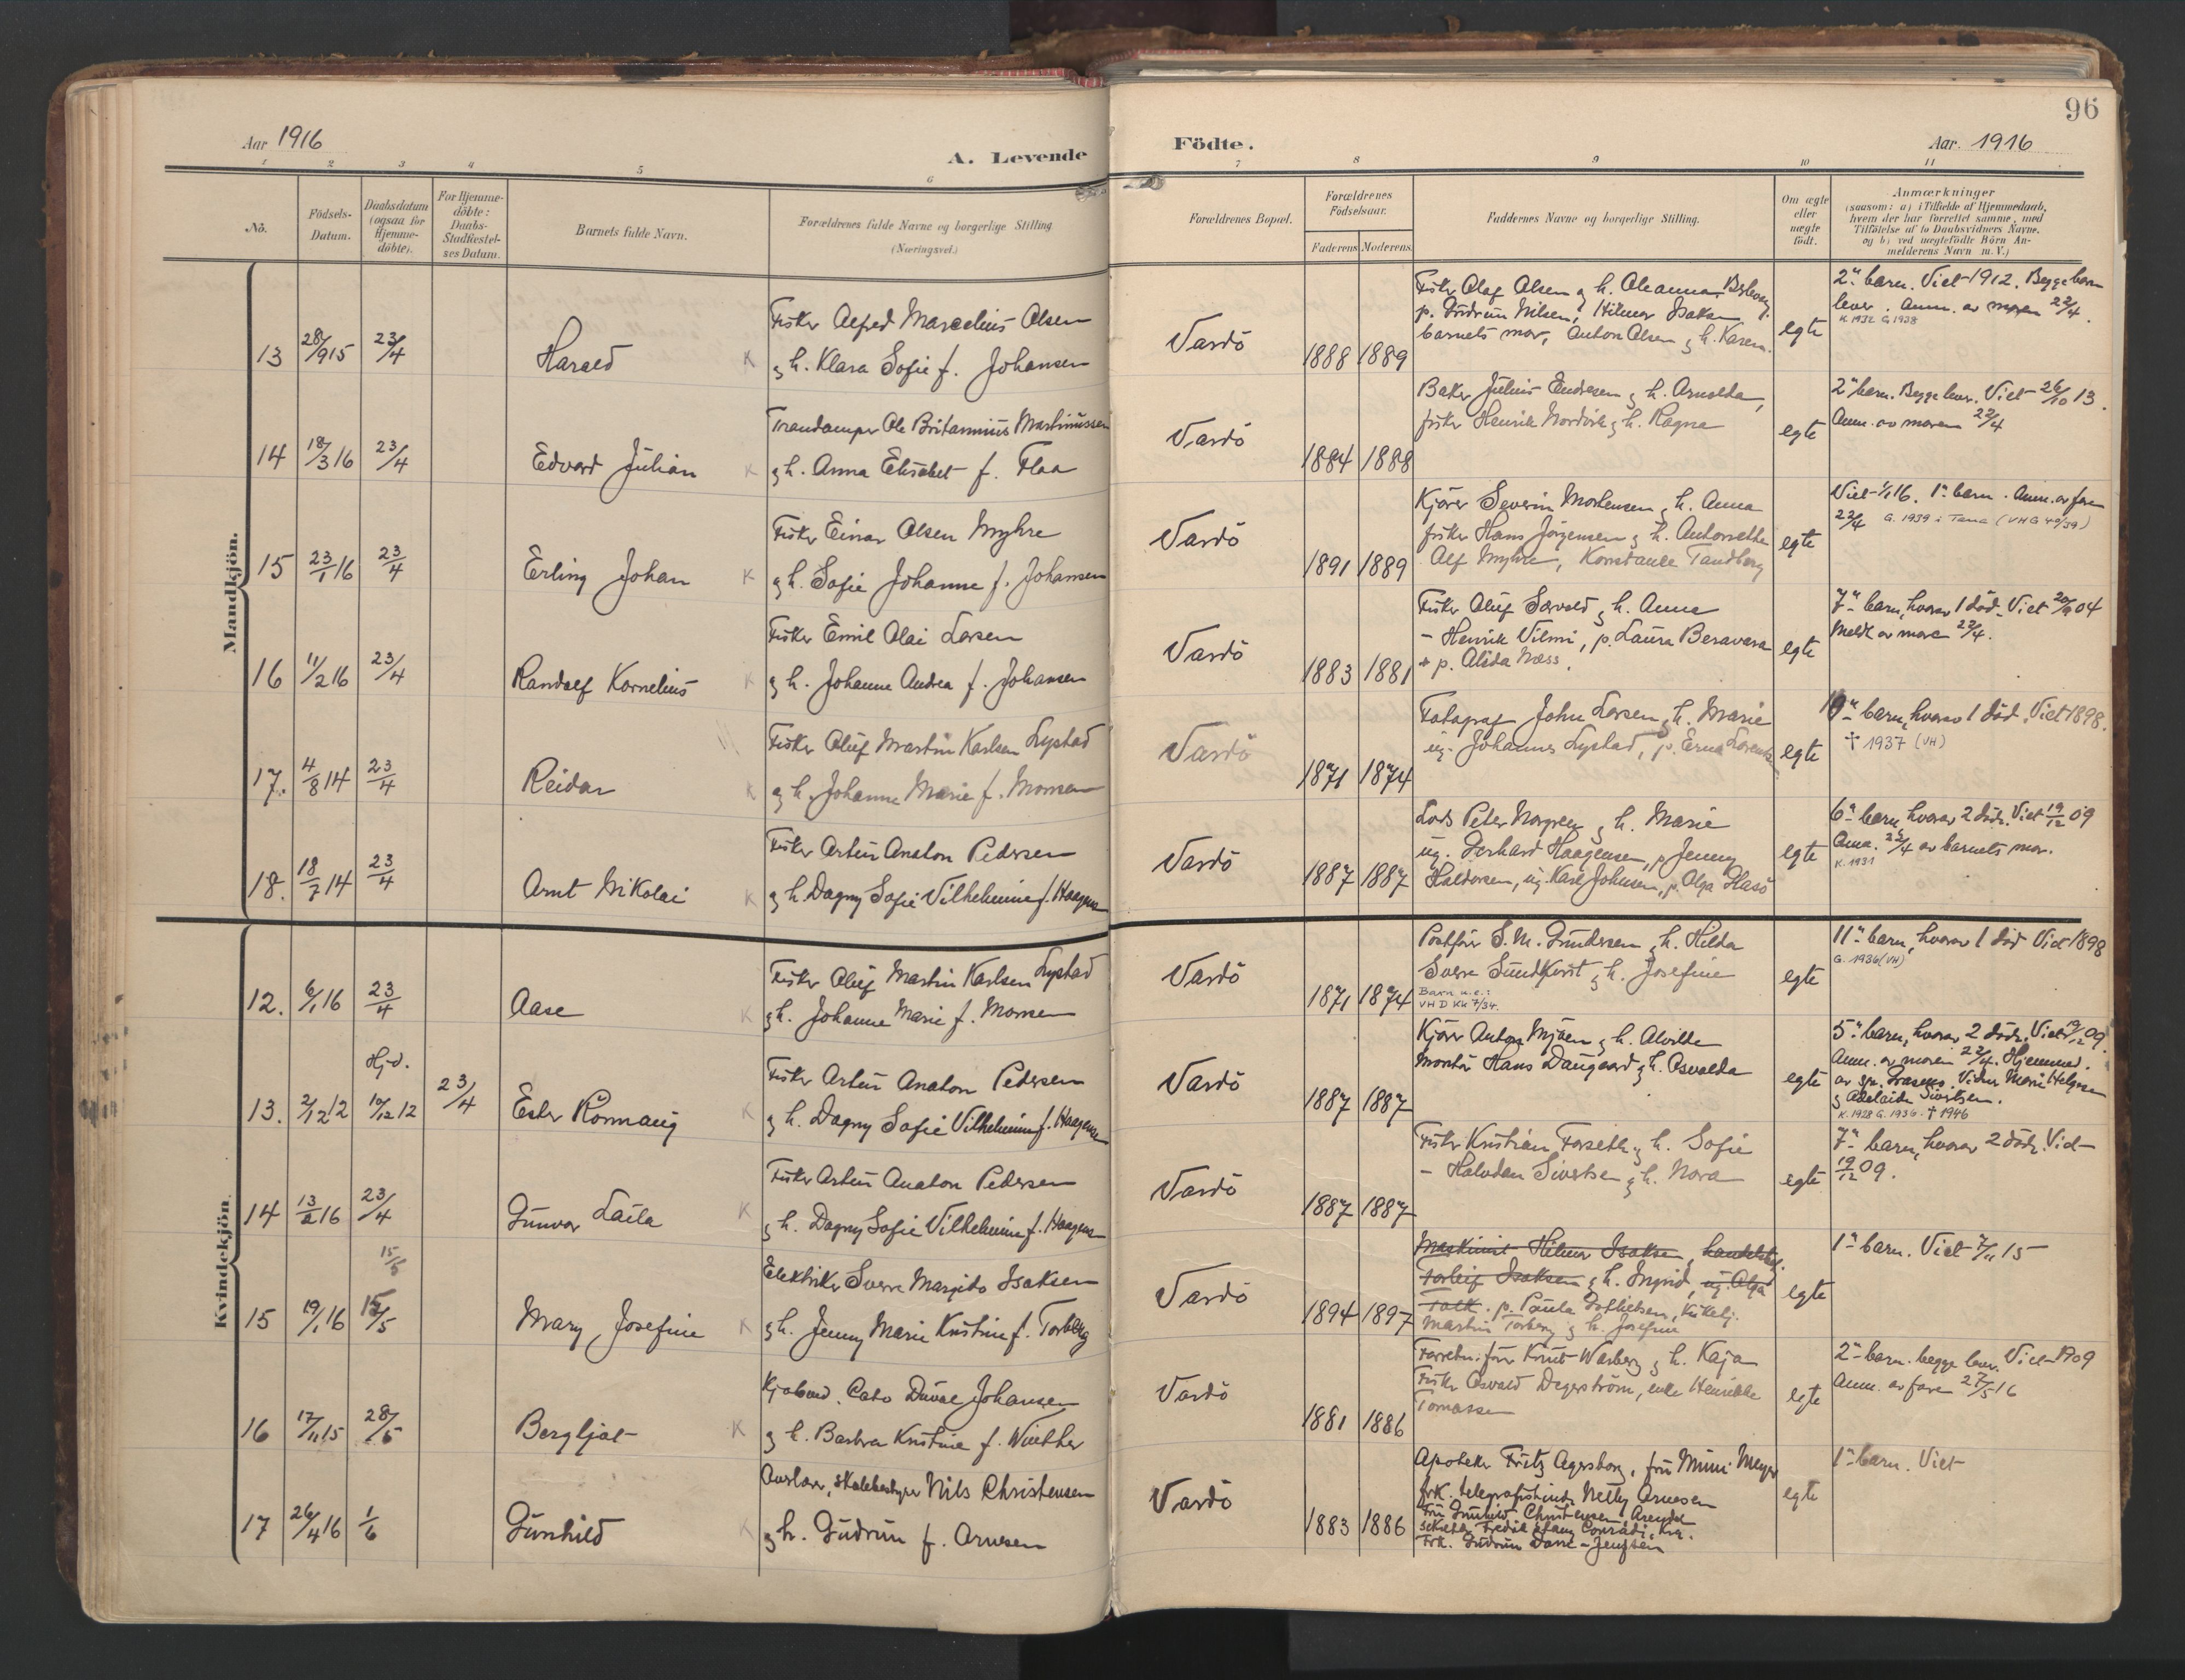 96
Aar 1916
A. Levende
Födte.
Aar. 1916
1 2 3 4 5 6 7 8 9 10 11
No.
Födsels-
Datum.
Daabsdatum
(ogsaa for
Hjemme-
döbte).
For Hjemme-
döbte:
Daabs-
Stadfæstel-
ses Datum.
Barnets fulde Navn.
Forældrenes fulde Navne og borgerlige Stilling
(Næringsvei.)
Forældrenes Bopæl.
Forældrenes
Födselsaar.
Faderens Moderens
Faddernes Navne og borgerlige Stilling.
Om ægte
eller
uægte
födt.
Anmærkninger
(saasom: a) i Tilfælde af Hjemmedaab,
hvem der har forrettet samme, med
Tilföielse af to Daabsvidners Navne.
og b) ved uægtefödte Börn An-
melderens Navn m. V.)
Mandkjön.
13 28/9 15 23/4 Harald K
Fisker Alfred Marcelius Olsen
og h. Klara Sofie f. Johansen
Vardö 1888 1889
Fisker Olaf Olsen og h. Oleanna,
p. Gudrun Nilsen, Hilmar Isaksen
barnets mor, Anton Olsen og h. Karen.
egte
2et barn. Viet 1912. Begge barn
lever. Anm. av moren 22/4.
K. 1932 G. 1938
14 18/3 16 23/4 Edvard Julian K
Trandamper Ole Britannius Martinussen
og h. Anna Elisabet f. Flaa
Vardö 1884 1888
Baker Julius Endresen og h. Arnolda,
fisker Henrik Nordvik og h. Ragna
egte
2et barn. Begge lever. Viet 26/10 13.
Anm. av moren 22/4
15 23/1 16 23/4 Erling Johan K
Fisker Einar Olsen Myhre
og h. Sofie Johanne f. Johansen
Vardö 1891 1889
Kjörer Severin Mortensen og h. Anna
fisker Hans Jörgensen og h. Antonette
Alf Myhre, Konstanse Tandberg
egte
Viet 1/1 16. 1e barn. Anm. av faren
22/4 G. 1939 i Tana (VHG 40/39)
16 11/2 16 23/4 Randolf Kornelius K
Fisker Emil Olai Larsen
og h. Johanne Andrea f. Johansen
Vardö 1883 1881
Fisker Oluf Sarvold og h. Anna
- Henrik Vilmi, p. Laura Beravara
+ p. Alida Næss.
egte
7e barn, hvorav 1 död. Viet 04
Meldt av moren 22/4.
17. 4/8 14 23/4 Reidar K
Fisker Oluf Martin Karlsen Lystad
og h. Johanne Marie f. Monsen
Vardö 1871 1874
Fotograf John Larsen og h. Marie
ug. Johannes Lystad, p. Erna
egte
10e barn, hvorav 1 död. Viet 1898.
† 1937 (VH)
18. 18/7 14 23/4 Arnt Nikolai K
Fisker Artur Anaton Pedersen
og h. Dagny Sofie Vilhelmine f. Haagensen
Vardö 1887 1887
Lods Peter Norgren og h. Marie
ug. Gerhard Haagensen, p. Jenny
Haldorsen, ug. Karl Johnsen, p. Olga Hasö
egte
6e barn, hvorav 2 döde. Viet 19/12 09
Anm. 22/4 av barnets mor.
K. 1931
Kvindekjön.
12. 6/1 16 23/4 Aase K
Fisker Oluf Martin Karlsen Lystad
og h. Johanne Marie f. Monsen
Vardö 1871 1874
Postförer S. M. Gundersen og h. Hilda
Sverre Sundkvist og h. Josefine
Barn u.e.:
VH D KK 7/34.
egte
11e barn, hvorav 1 död Viet 1898
G. 1936 (VH)
13. 2/12 12 Hjd. 10/12 12 23/4 Ester Römaug
Fisker Artur Anaton Pedersen
og h. Dagny Sofie Vilhelmine f. Haagensen
Vardö 1887 1887
Kjörer Anton Mjöen og h. Alvilda
Montör Hans Daugaard og h. Osvalda
egte
5e barn, hvorav 2 döde. Viet 19/12 09.
Anm. av moren 22/4. Hjemmed.
av spr. Vidner Marie Helgesen
og Adelaide Sivertsen.
K. 1928 G. 1936. † 1946
14 13/2 16 23/4 Gunvor Laila K
Fisker Artur Anaton Pedersen
og h. Dagny Sofie Vilhelmine f. Haagensen
Vardö 1887 1887
Fisker Kristian Forseth og h. Sofie
- Halvdan Sivertsen og h. Nora
egte
7e barn, hvorav 2 döde. Viet
19/12 09.
15/5
15 19/1 16 15/5 Mary Josefine K
Elektriker Sverre Margido Isaksen
og h. Jenny Marie Kristine f. Torberg
Vardö 1894 1897
Maskinist Hilmar Isaksen, handelsbestj.
Torleif Isaksen og h. Ingrid, ug. Olga
Falk. p. Paula
Martin Torberg og h. Josefine
egte
1e barn. Viet 7/11 15
16 17/11 15 28/5 Bergljot K
Kjöbmd. Cato Duval Johansen
og h. Barbra Kristine f. Winther
Vardö 1881 1886
Forretn.förer Knut Warberg og h. Kaja
Fisker Osvald Degerström, enke Henrikke
Tomassen
egte
2et barn. begge lever. Viet 1909
Anm. av faren 27/5 16
17 26/4 16 1/6 Gunhild K
Overlærer, skolebestyrer Nils Christensen
og h. Gudrun f. Arnesen
Vardö 1883 1886
Apoteker Fritz Agersborg, fru Mimi Meyer
frk. telegrafistinde Nelly Arnesen
Fru Gunhild Christensen, Arendal
sekretær Fredrik Conradi, Kra.
Frk. Gudrun
egte
1e barn. Viet